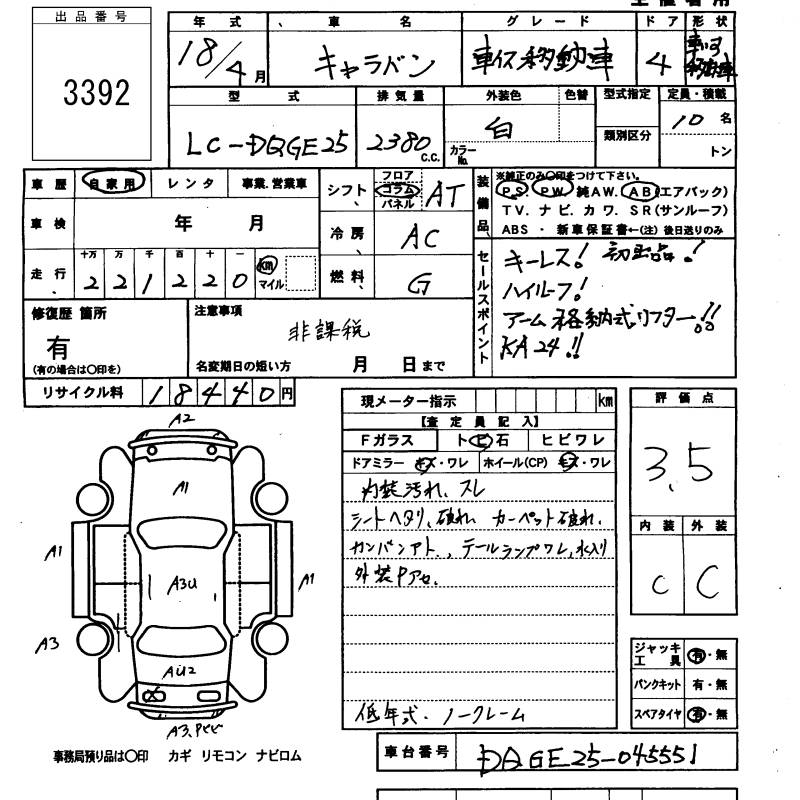 出品番号
3392
年式 車名 グレード ドア 形状
18/4月 キャラバン 車イス移動車 4
型式 排気量 外装色 色替 型式指定 定員・積載
LC-DQGE25 2380 C.C. 白 カラーNo. 類別区分 10名 トン
車歴 自家用 レンタ 事業.営業車
車検 年 月
走行 十万 万 千 百 十 一 221220 km マイル
シフト フロア コラム パネル AT
冷房 AC
燃料 G
装備品 ※純正のみ○印をつけて下さい。
PS PW 純AW. AB(エアバック)
TV. ナビ. カワ. SR(サンルーフ)
ABS ・ 新車保証書←(注) 後日送りのみ
セールスポイント
キーレス! 初出品!
ハイルーフ!
アーム格納式リフター!!
KA24!!
修復歴 箇所
有
(有の場合は○印を)
注意事項
非課税
名変期日の短い方 月 日まで
リサイクル料 18440円
現メーター指示 km
【査定員記入】
Fガラス トビ石 ヒビワレ
ドアミラー キズ・ワレ ホイール(CP) キズ・ワレ
内装汚れ、スレ
シートヘタリ、破れ、カーペット破れ、
カンバンアト、テールランプワレ,水入り
外装Pアセ。
低年式・ノークレーム
評価点
3.5
内装 外装
C C
ジャッキ工具 有・無
パンクキット 有・無
スペアタイヤ 有・無
A2
A1
A1
A3U
A1
A3
AU2
A3,Pヒビ
事務局預り品は○印 カギ リモコン ナビロム
車台番号 DQGE25-045551